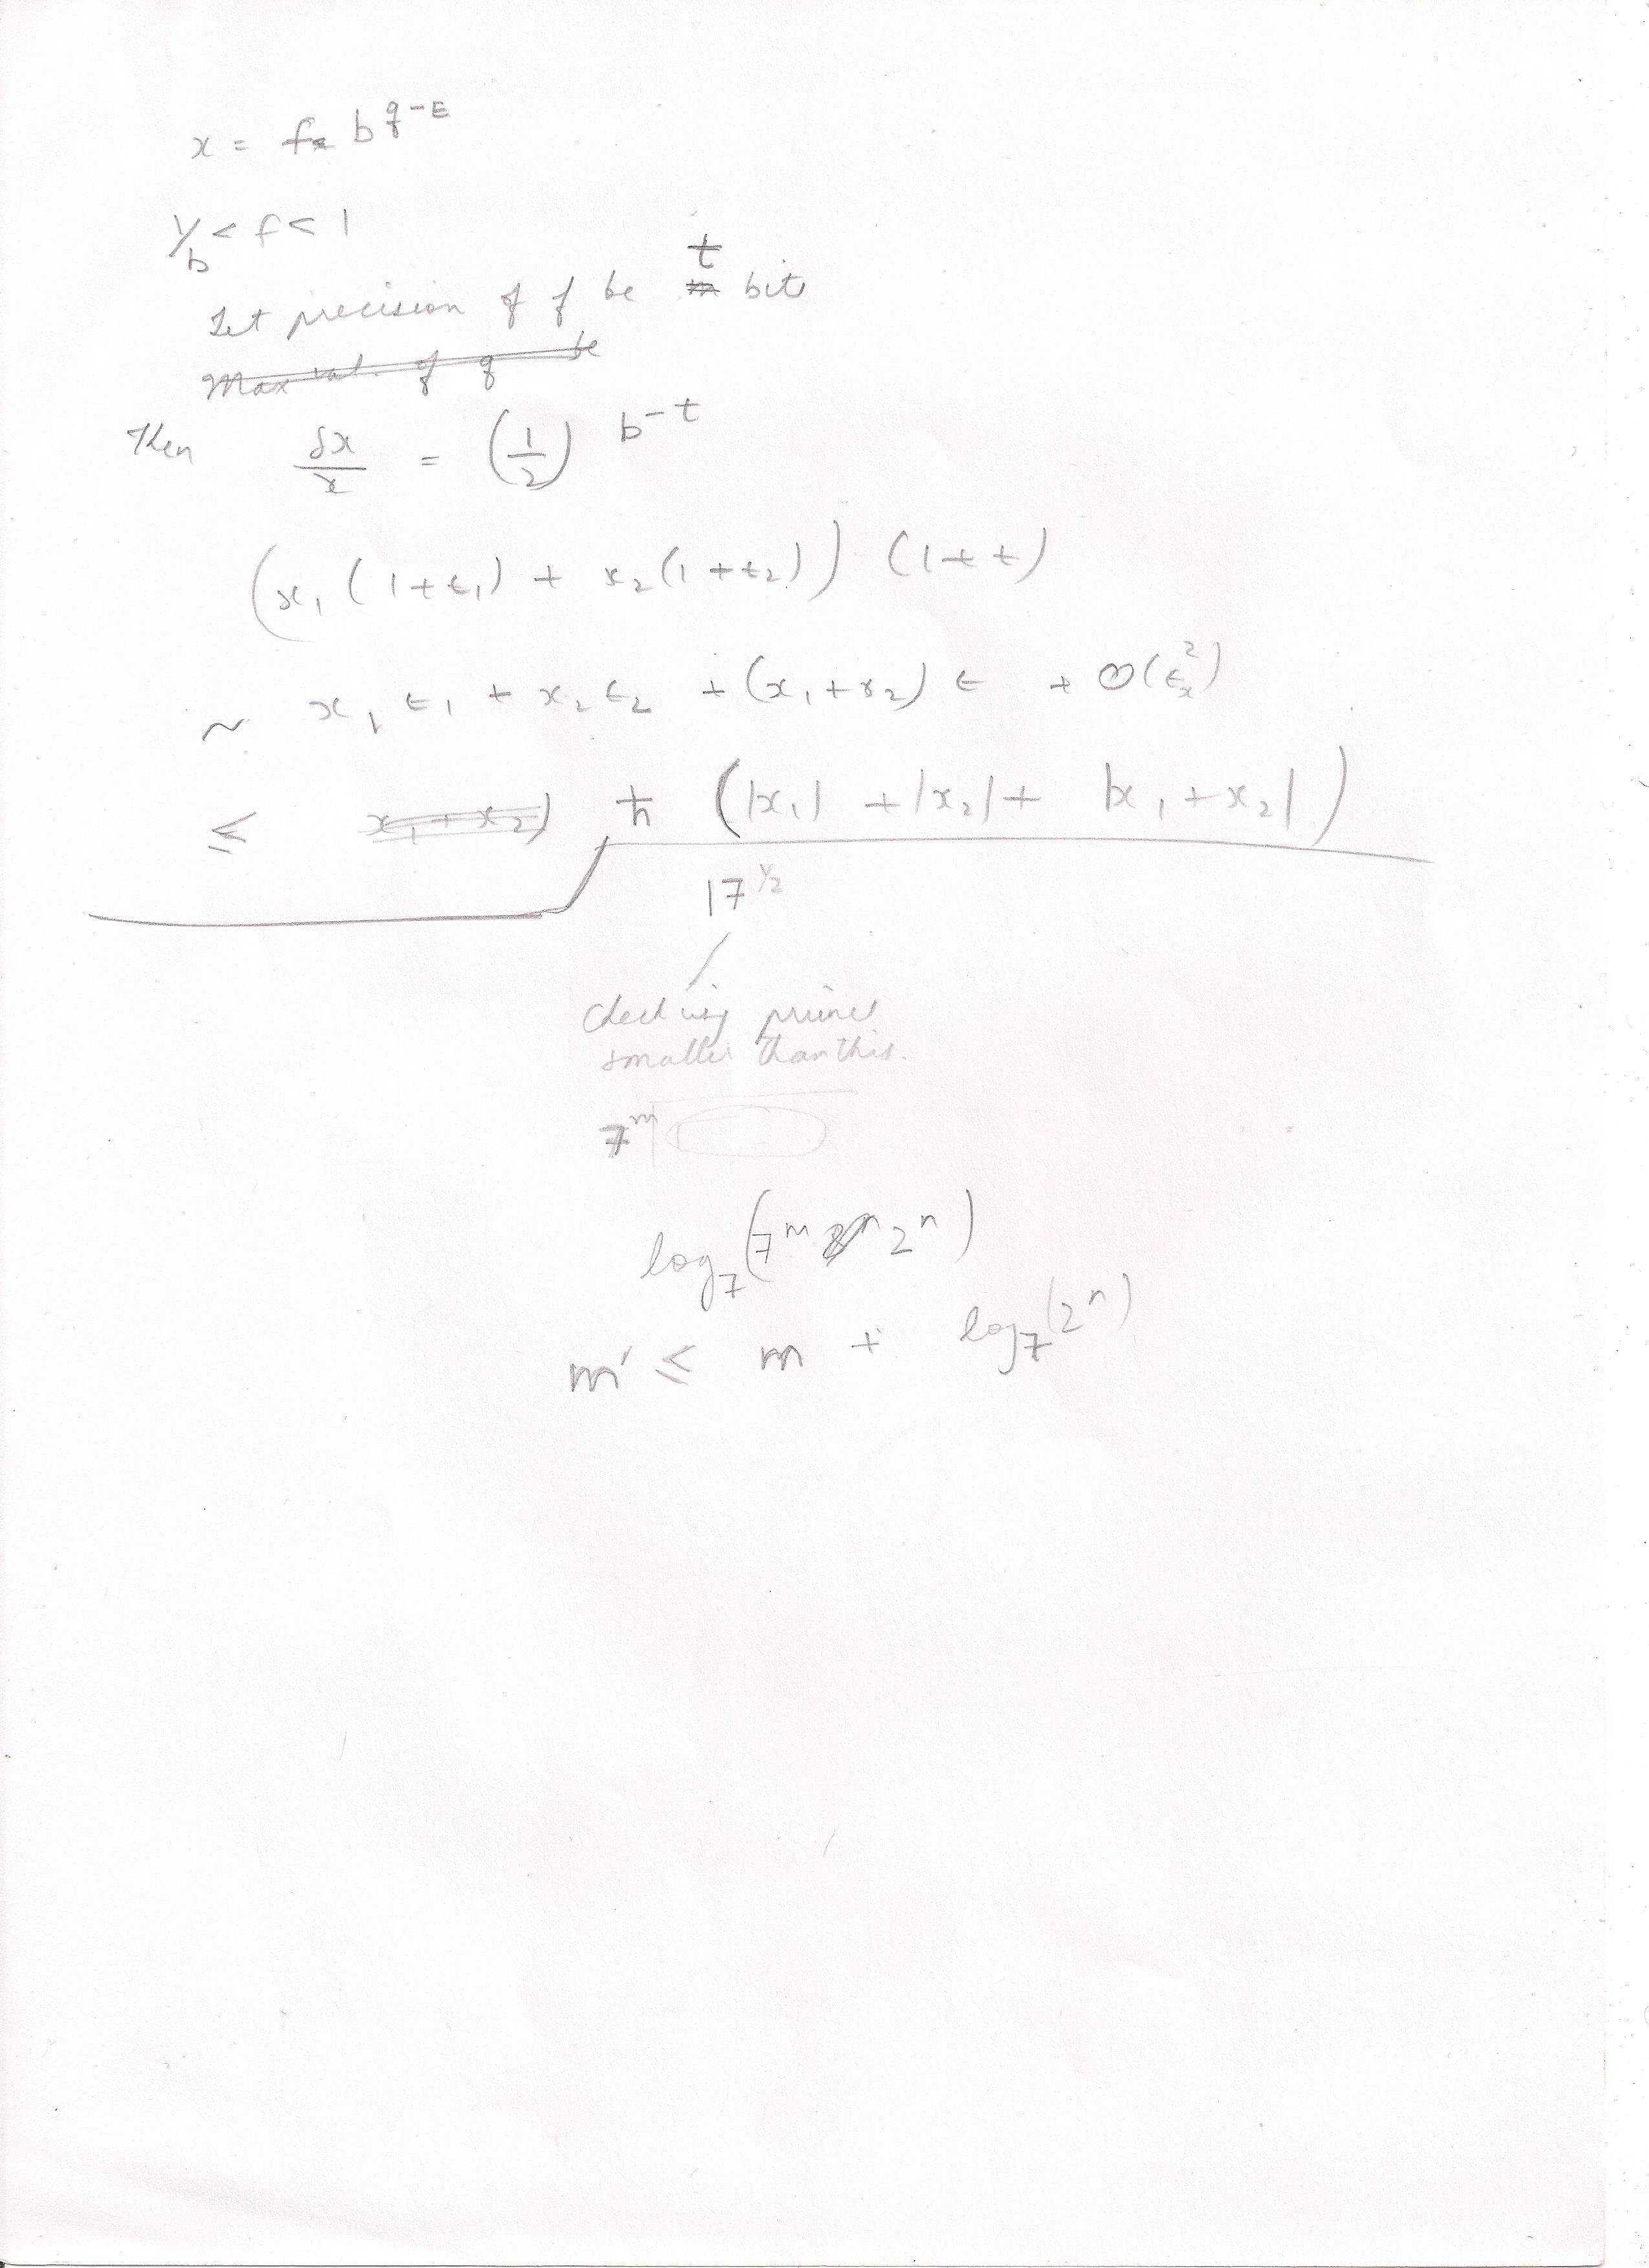 x = f b^{q-E}
1/b < f < 1
Let precision of f be t bits
Max val. of q be
Then δx/x = (1/2) b^{-t}
(x₁(1+ε₁) + x₂(1+ε₂)) (1+ε)
~ x₁ε₁ + x₂ε₂ + (x₁+x₂)ε + O(ε²)
≤ x₁+x₂) ħ (|x₁| + |x₂| + |x₁+x₂|)
17^{1/2}
primes
smaller than this.
7^m
log₇(7^m 2^n)
m' ≤ m + log₇(2^n)